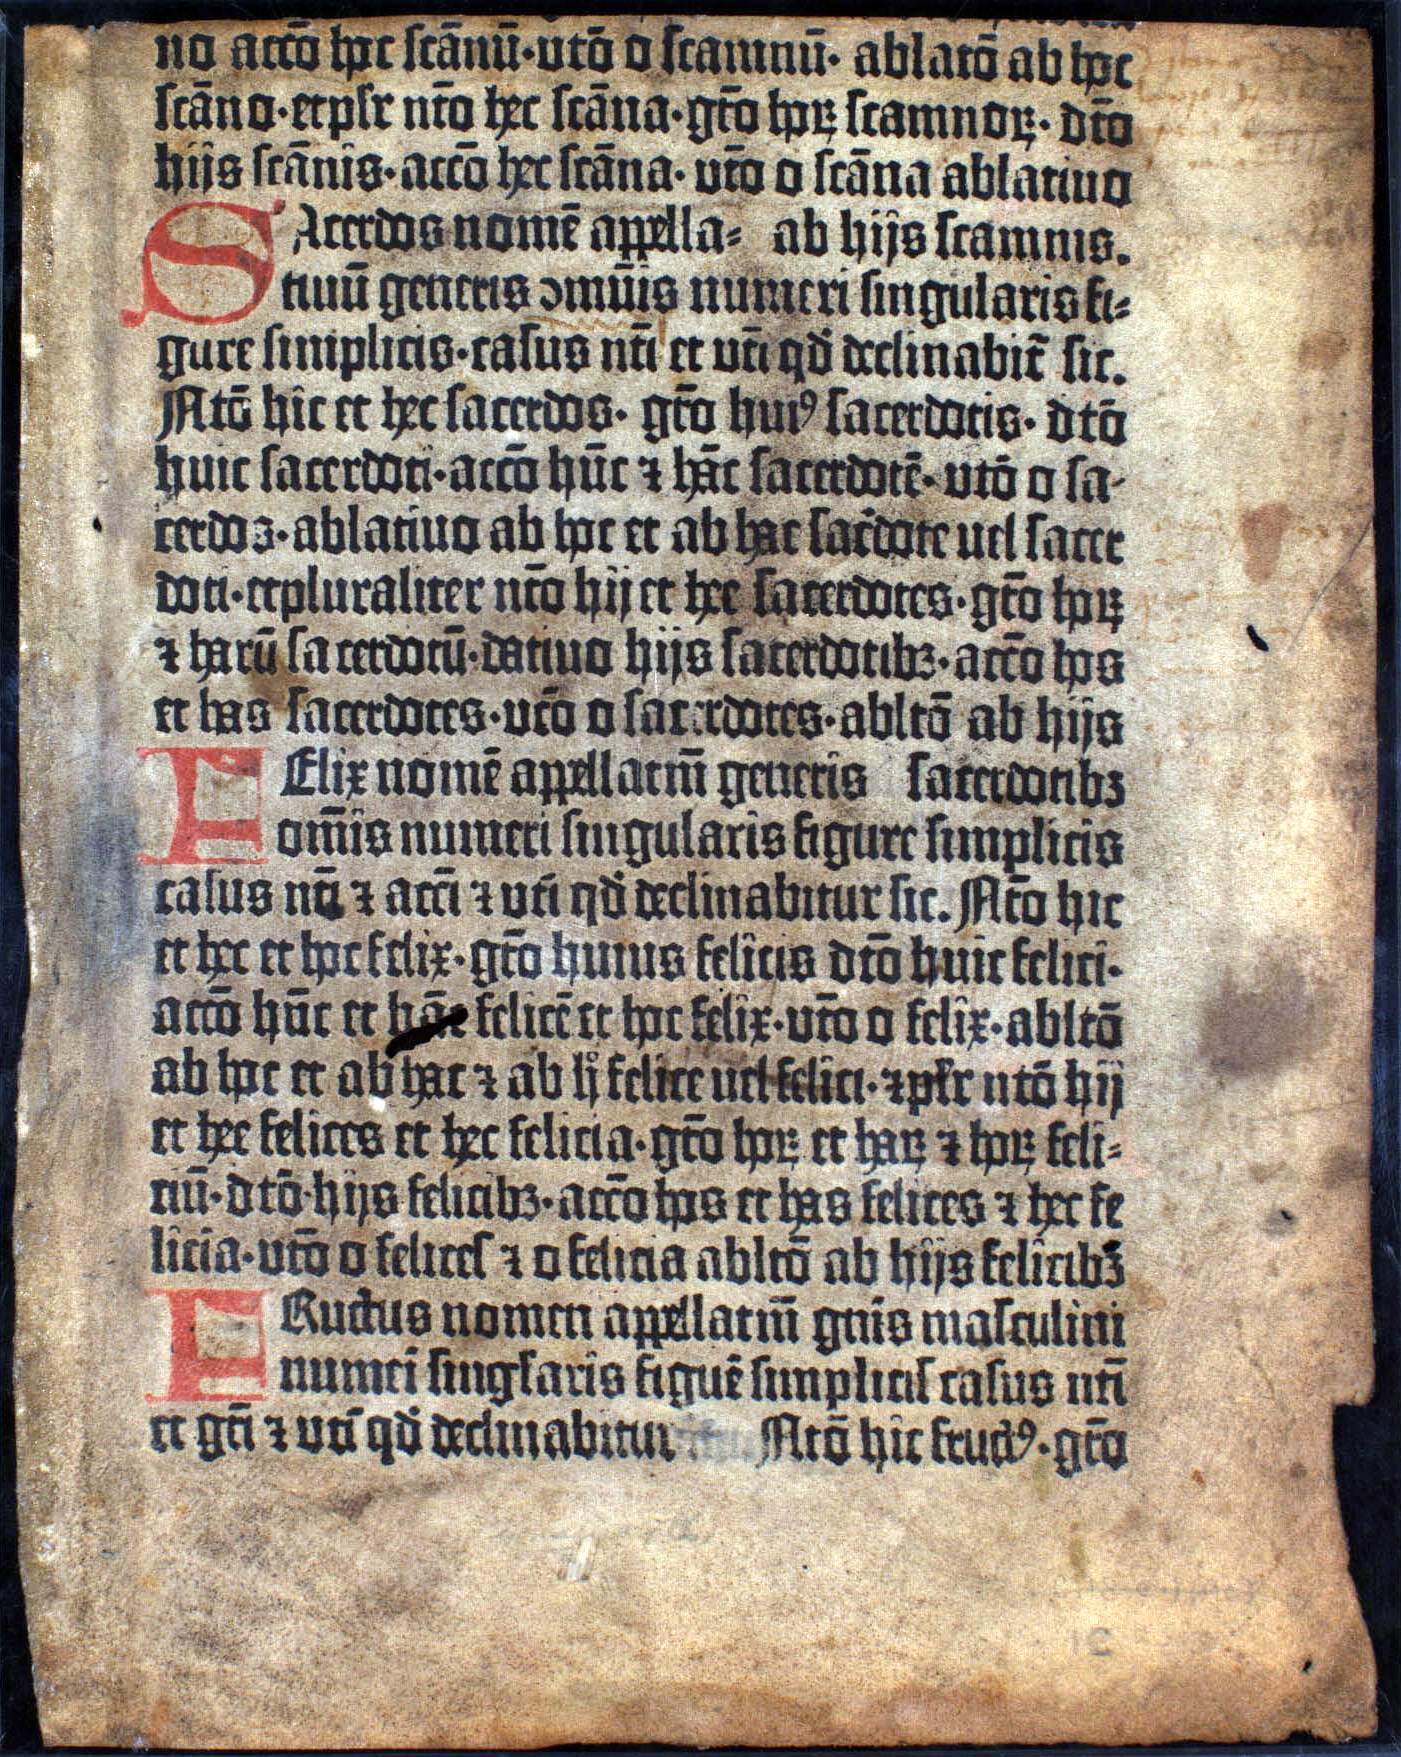 no acco̅ hoc sca̅nu̅·vto̅ o scamnu̅· ablato̅ ab hoc
sca̅no·etplr nto̅ hec sca̅na·gto̅ hoꝝ scamnoꝝ· dto̅
hijs sca̅nis·acco̅ hec sca̅na· vto̅ o sca̅na ablatiuo
SAcerdos nome̅ appella⸗ ab hijs scamnis.
tiuu̅ generis ↄmu̅is numeri singularis fi⸗
gure simplicis·casus nti̅ et vti̅ qd̕ declinabit̅ sic.
Nto̅ hic et hec sacerdos· gto̅ huiꝰ sacerdotis· dto̅
huic sacerdoti·acco̅ hu̅c ⁊ ha̅c sacerdote̅· vto̅ o sa⸗
cerdos·ablatiuo ab hoc et ab hac sac̕dote uel sacer
doti·etpluraliter nto̅ hij et hee sacerdotes·gto̅ hoꝝ
⁊ haru̅ sacerdotu̅·datiuo hijs sacerdotibꝫ·acco̅ hos
et has sacerdotes·vto̅ o sacerdotes·ablto̅ ab hijs
FElix nome̅ appellatiu̅ generis sacerdotibꝫ
om̅is numeri singularis figure simplicis
casus nti̅ ⁊ acci̅ ⁊ vti̅ qd̕ declinabitur sic. Nto̅ hic
et hec et hoc felix·gto̅ huius felicis dto̅ huic felici·
acco̅ hu̅c et ha̅c felice̅ et hoc felix·vto̅ o felix·ablto̅
ab hoc et ab hac ⁊ ab h̊ felice uel felici·⁊pl̕r nto̅ hij
et hee felices et hec felicia·gto̅ hoꝝ et haꝝ ⁊ hoꝝ feli⸗
ciu̅·dto̅·hijs felicibꝫ·acco̅ hos et has felices ⁊ hec fe
licia·vto̅ o felices ⁊ o felicia ablto̅ ab hijs felicibꝫ
FRuctus nomen appellatiu̅ gn̅is masculini
numei̅ singlaris figue̅ simplicis casus nti̅
et gti̅ ⁊ vti̅ qd̕ declinabitur Nto̅ hic fructꝰ·gto̅